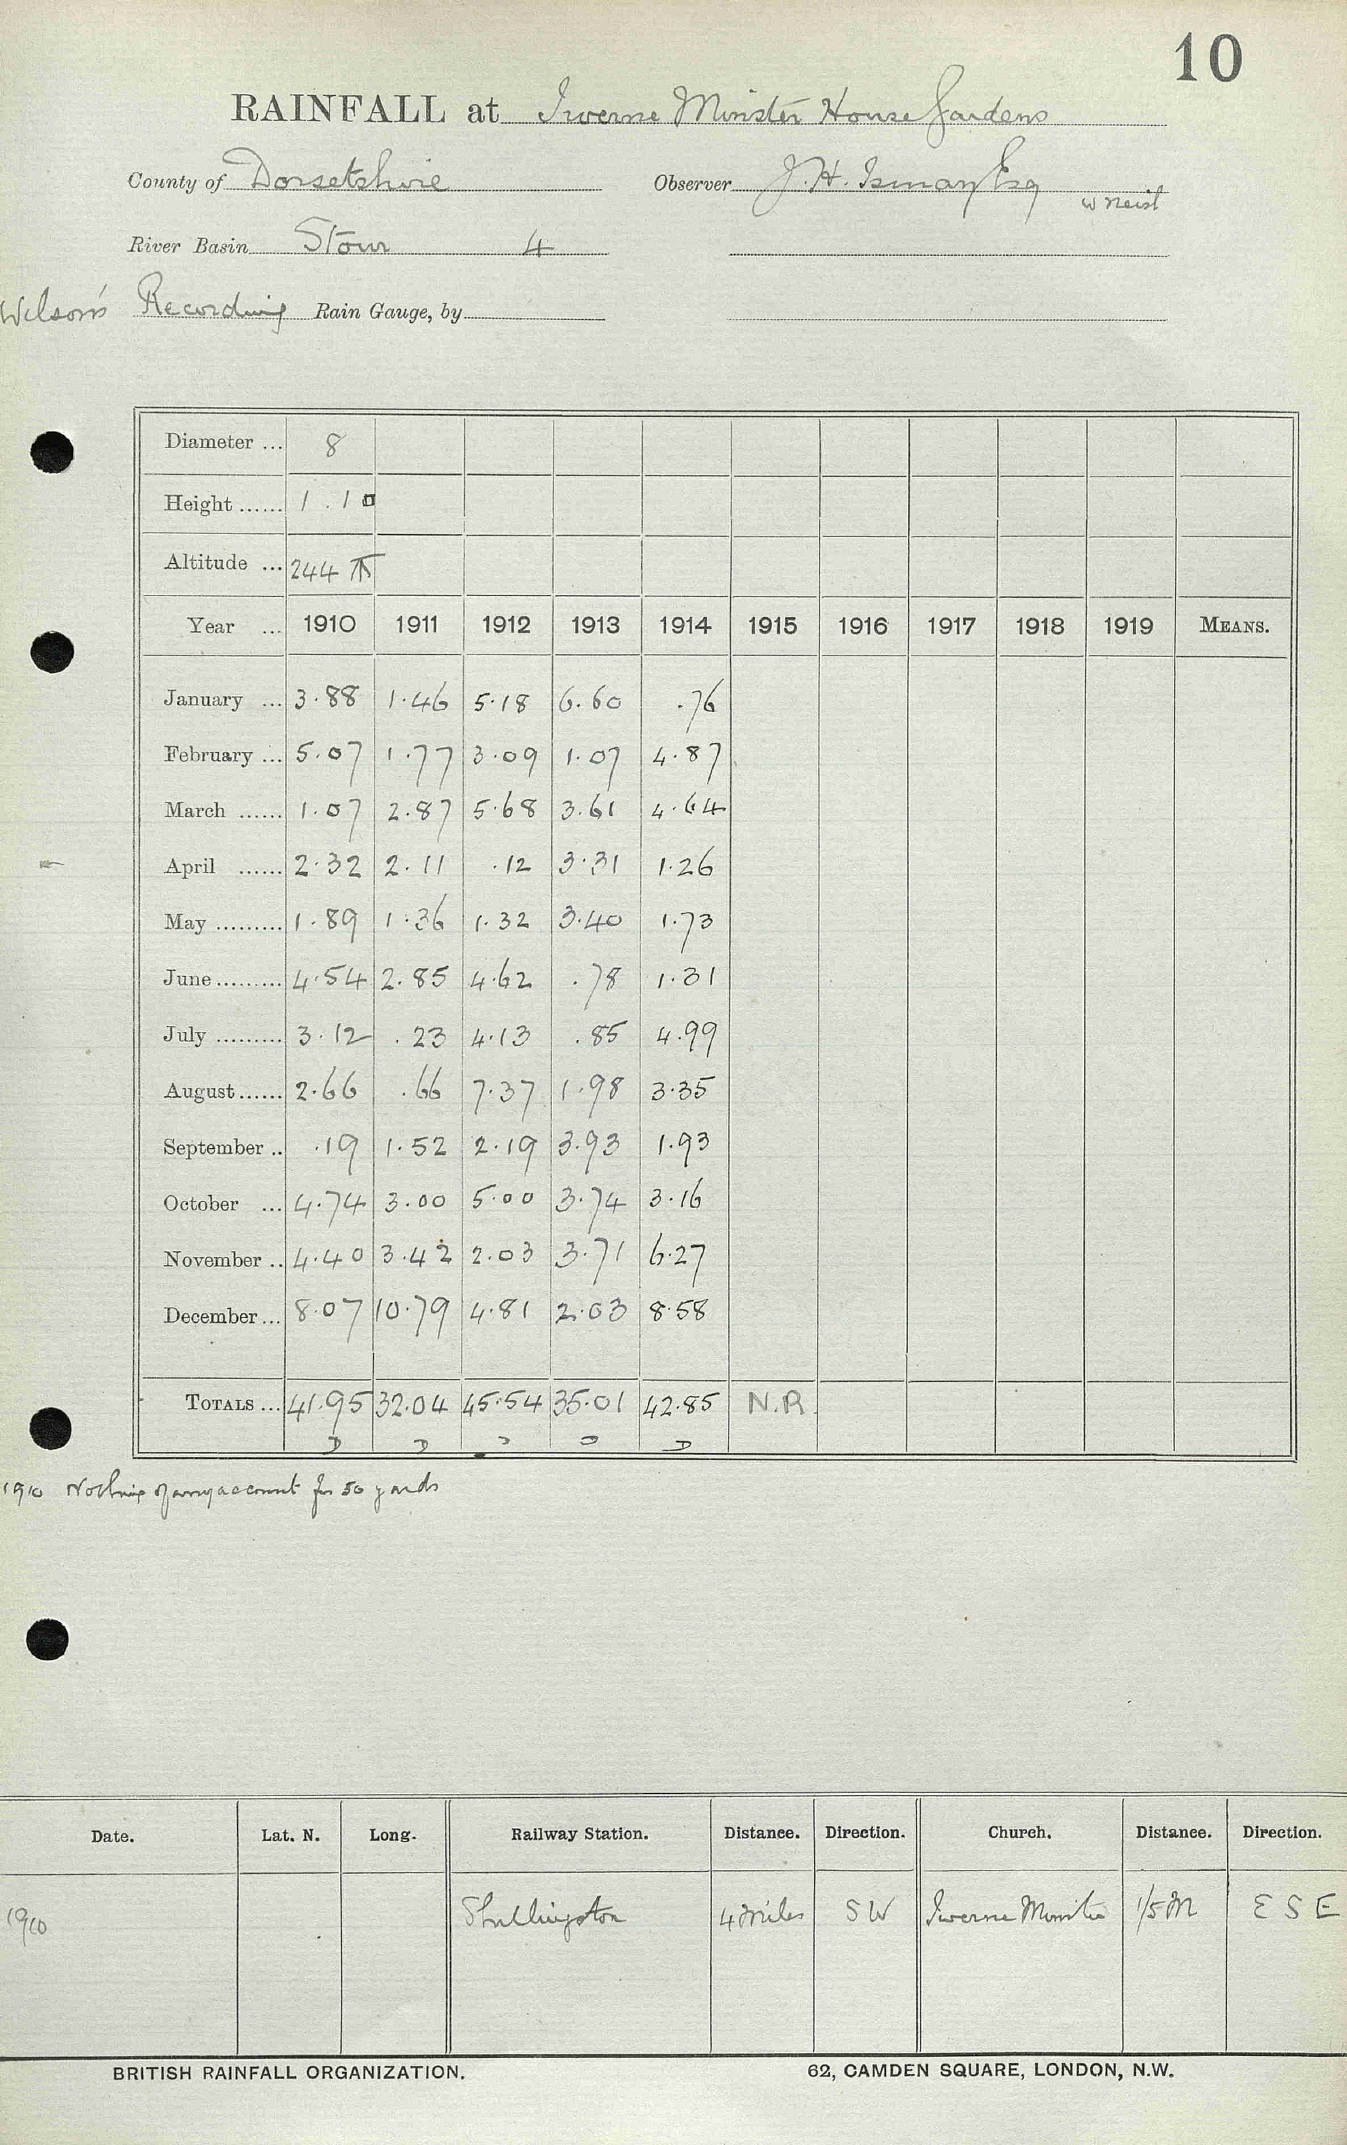 10
RAINFALL at Iwerne Minster House Gardens
County of Dorsetshire Observer J. H. Ismay Esq
River Basin Stour 4
Wilson's Recording Rain Gauge, by
Diameter ... 8
Height ...... 1.10
Altitude ... 244
Year ... 1910 1911 1912 1913 1914 1915 1916 1917 1918 1919 MEANS.
January ... 3.88 1.46 5.18 6.60 .76
February ... 5.07 1.77 3.09 1.07 4.87
March ...... 1.07 2.87 5.68 3.61 4.64
April ...... 2.32 2.11 .12 3.31 1.26
May ......... 1.89 1.36 1.32 3.40 1.73
June ......... 4.54 2.85 4.62 .78 1.31
July ......... 3.12 .23 4.13 .85 4.99
August ...... 2.66 .66 7.37 1.98 3.35
September .. .19 1.52 2.19 3.93 1.93
October ... 4.74 3.00 5.00 3.74 3.16
November .. 4.40 3.42 2.03 3.71 6.27
December ... 8.07 10.79 4.81 2.03 8.58
TOTALS ... 41.95 32.04 45.54 35.01 42.85 N.R.
1910 Nothing of any account for 50 yards
Date. Lat. N. Long. Railway Station. Distance. Direction. Church. Distance. Direction.
1910 Shillingston 4 miles SW Iwerne Minster 1/5 M E S E
BRITISH RAINFALL ORGANIZATION. 62, CAMDEN SQUARE, LONDON, N.W.